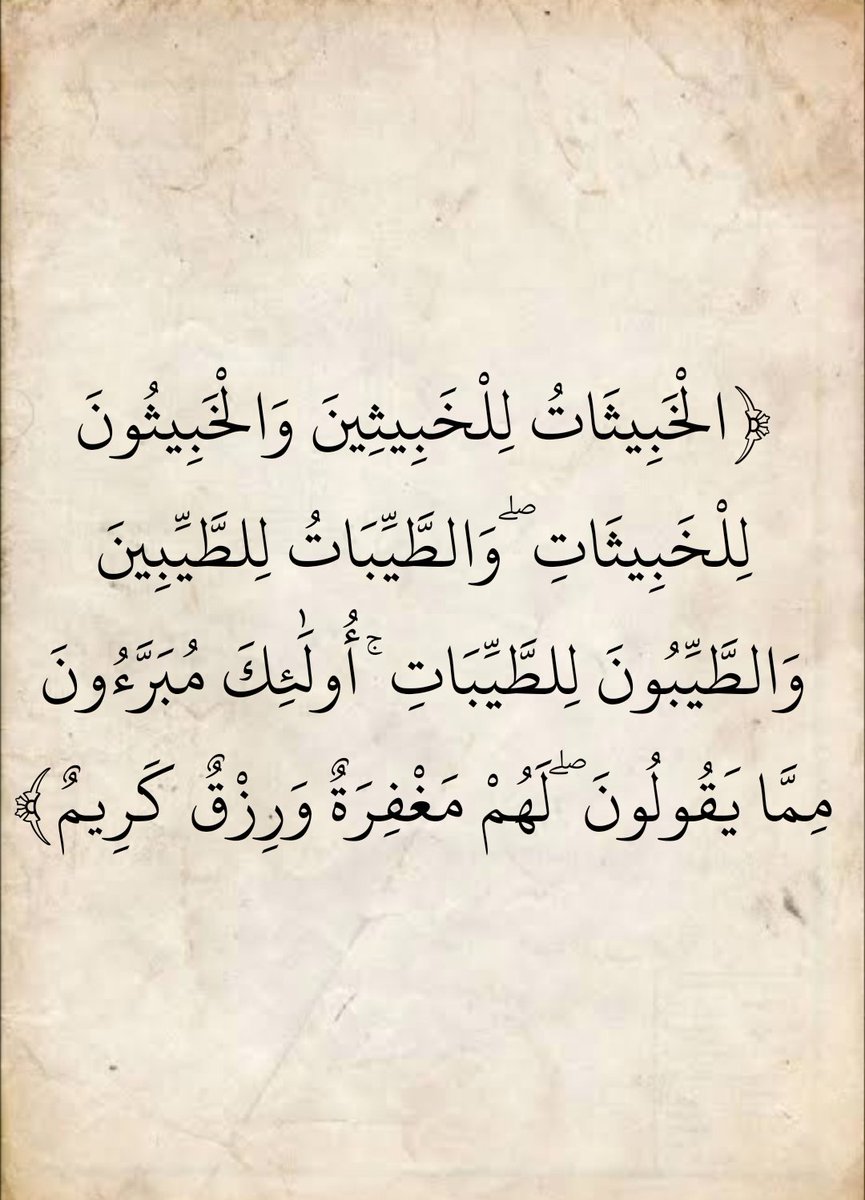 ﴿الْخَبِيثَاتُ لِلْخَبِيثِينَ وَالْخَبِيثُونَ
لِلْخَبِيثَاتِ ۖ وَالطَّيِّبَاتُ لِلطَّيِّبِينَ
وَالطَّيِّبُونَ لِلطَّيِّبَاتِ ۚ أُولَٰئِكَ مُبَرَّءُونَ
مِمَّا يَقُولُونَ ۖ لَهُمْ مَغْفِرَةٌ وَرِزْقٌ كَرِيمٌ﴾